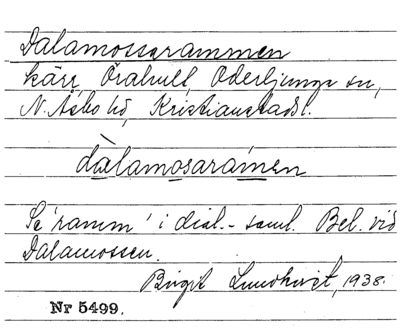 Dalamossarammen
kärr, Örahult, Oderljunga sn,
N. Åsbo hd, Kristianstadsl.
dàlamosaramen
Se 'ramm' i dial.-saml. Bel. vid
Dalamossen.
Birgit Lundkvist, 1938.
Nr 5499.